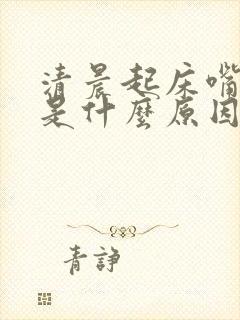 清晨起床嘴
是什麼原因
青諍